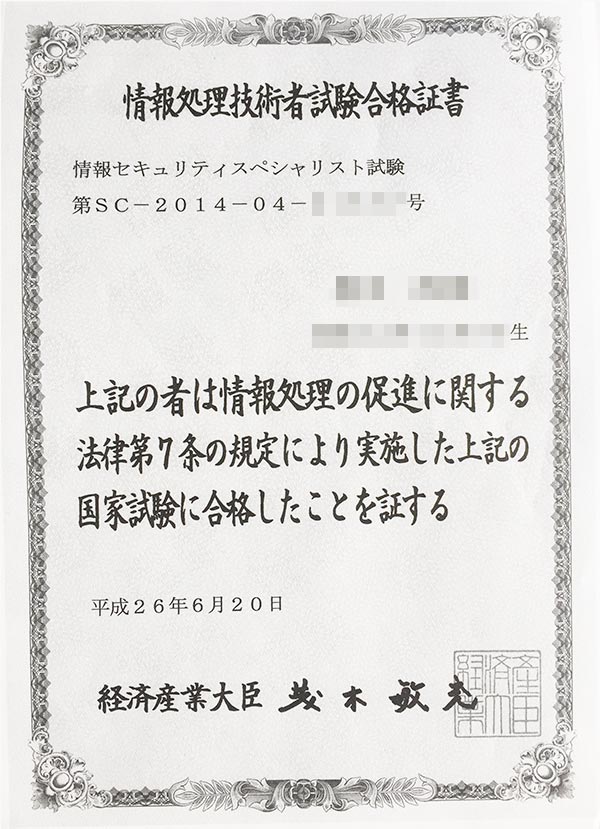 情報処理技術者試験合格証書
情報セキュリティスペシャリスト試験
第SC－2014－04－
号
生
上記の者は情報処理の促進に関する
法律第7条の規定により実施した上記の
国家試験に合格したことを証する
平成26年6月20日
経済産業大臣 茂木敏充
経済産業大臣